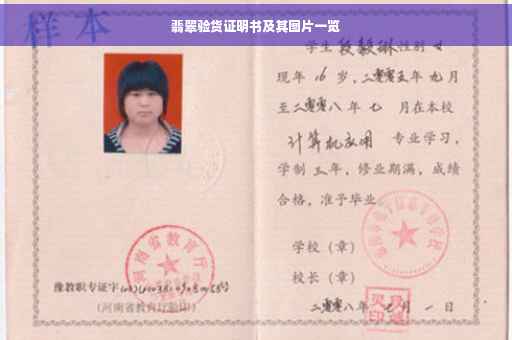 翡翠验货证明书及其图片一览
样本
学生段毅琳性别女
现年16岁，二零零五年九月
至二零零八年七月在本校
计算机应用专业学习，
学制三年，修业期满，成绩
合格，准予毕业。
学校（章）
校长（章）
二零零八年七月一日
河南省教育厅
豫教职专证字
(河南省教育厅验印)